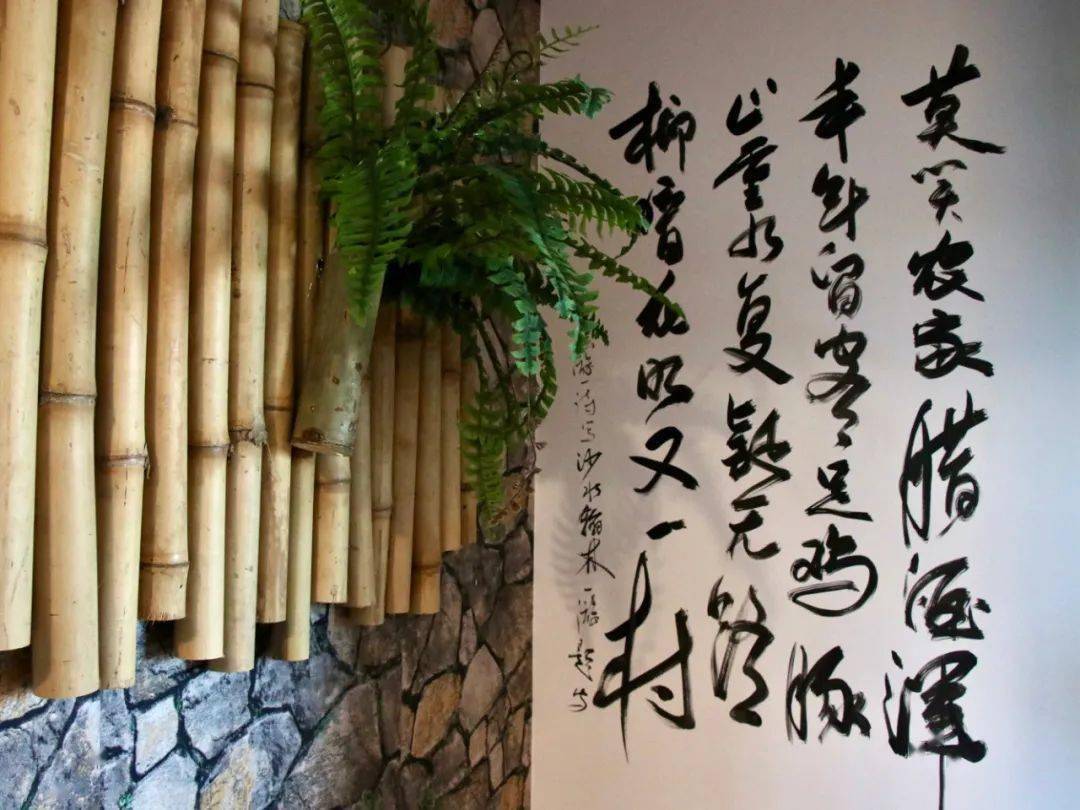 莫笑农家腊酒渾
丰年留客足鸡豚
山重水复疑无路
柳暗花明又一村
游一诗写沙水翰林一题